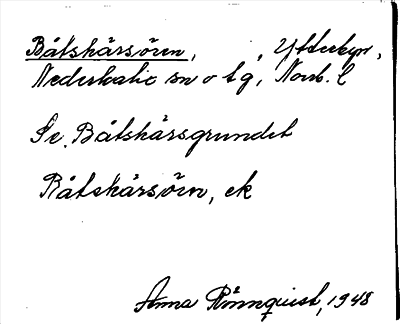 Båtskärsören, , Ytterbyn,
Nederkalix sn o tg, Norrb. l
Se Båtskärsgrundet
Båtskärsören, ek
Anna Rönnquist, 1948